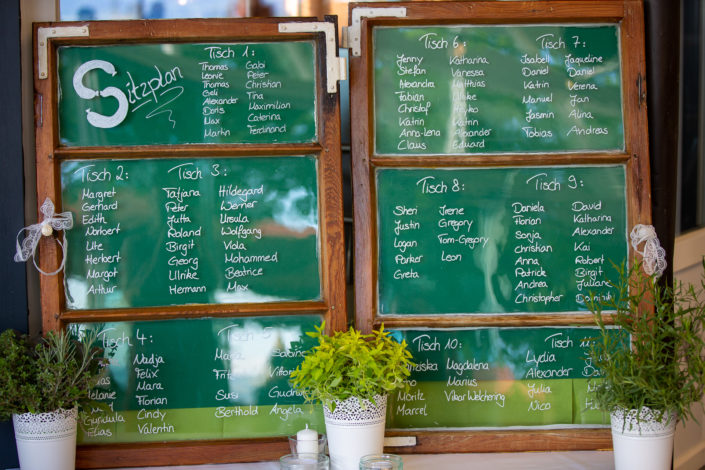 Sitzplan
Tisch 1:
Thomas Gabi
Leonie Peter
Thomas Christian
Geli Tina
Alexander Maximilian
Doris Caterina
Max Ferdinand
Martin
Tisch 2:
Margret
Gerhard
Edith
Norbert
Ute
Herbert
Margot
Arthur
Tisch 3:
Tatjana Hildegard
Peter Werner
Jutta Ursula
Roland Wolfgang
Birgit Viola
Georg Mohammed
Ulrike Beatrice
Hermann Max
Tisch 4:
Nadja
Felix
Mara
Florian
Gundula Cindy
Elias Valentin
Tisch 5
Susi
Berthold Angela
Tisch 6:
Jenny Katharina
Stefan Vanessa
Alexandra Matthias
Fabian Ulrike
Christof Heyko
Katrin Katrin
Anna-Lena Alexander
Claus Eduard
Tisch 7:
Isabell Jaqueline
Daniel Daniel
Katrin Verena
Manuel Jan
Jasmin Alina
Tobias Andreas
Tisch 8:
Sheri Irene
Justin Gregory
Logan Tom-Gregory
Parker Leon
Greta
Tisch 9:
Daniela David
Florian Katharina
Sonja Alexander
Christian Kai
Anna Robert
Patrick Birgit
Andrea Juliane
Christopher Dominik
Tisch 10:
Magdalena
Marius
Viktor Welchering
Moritz
Marcel
Tisch 11
Lydia
Alexander
Julia
Nico